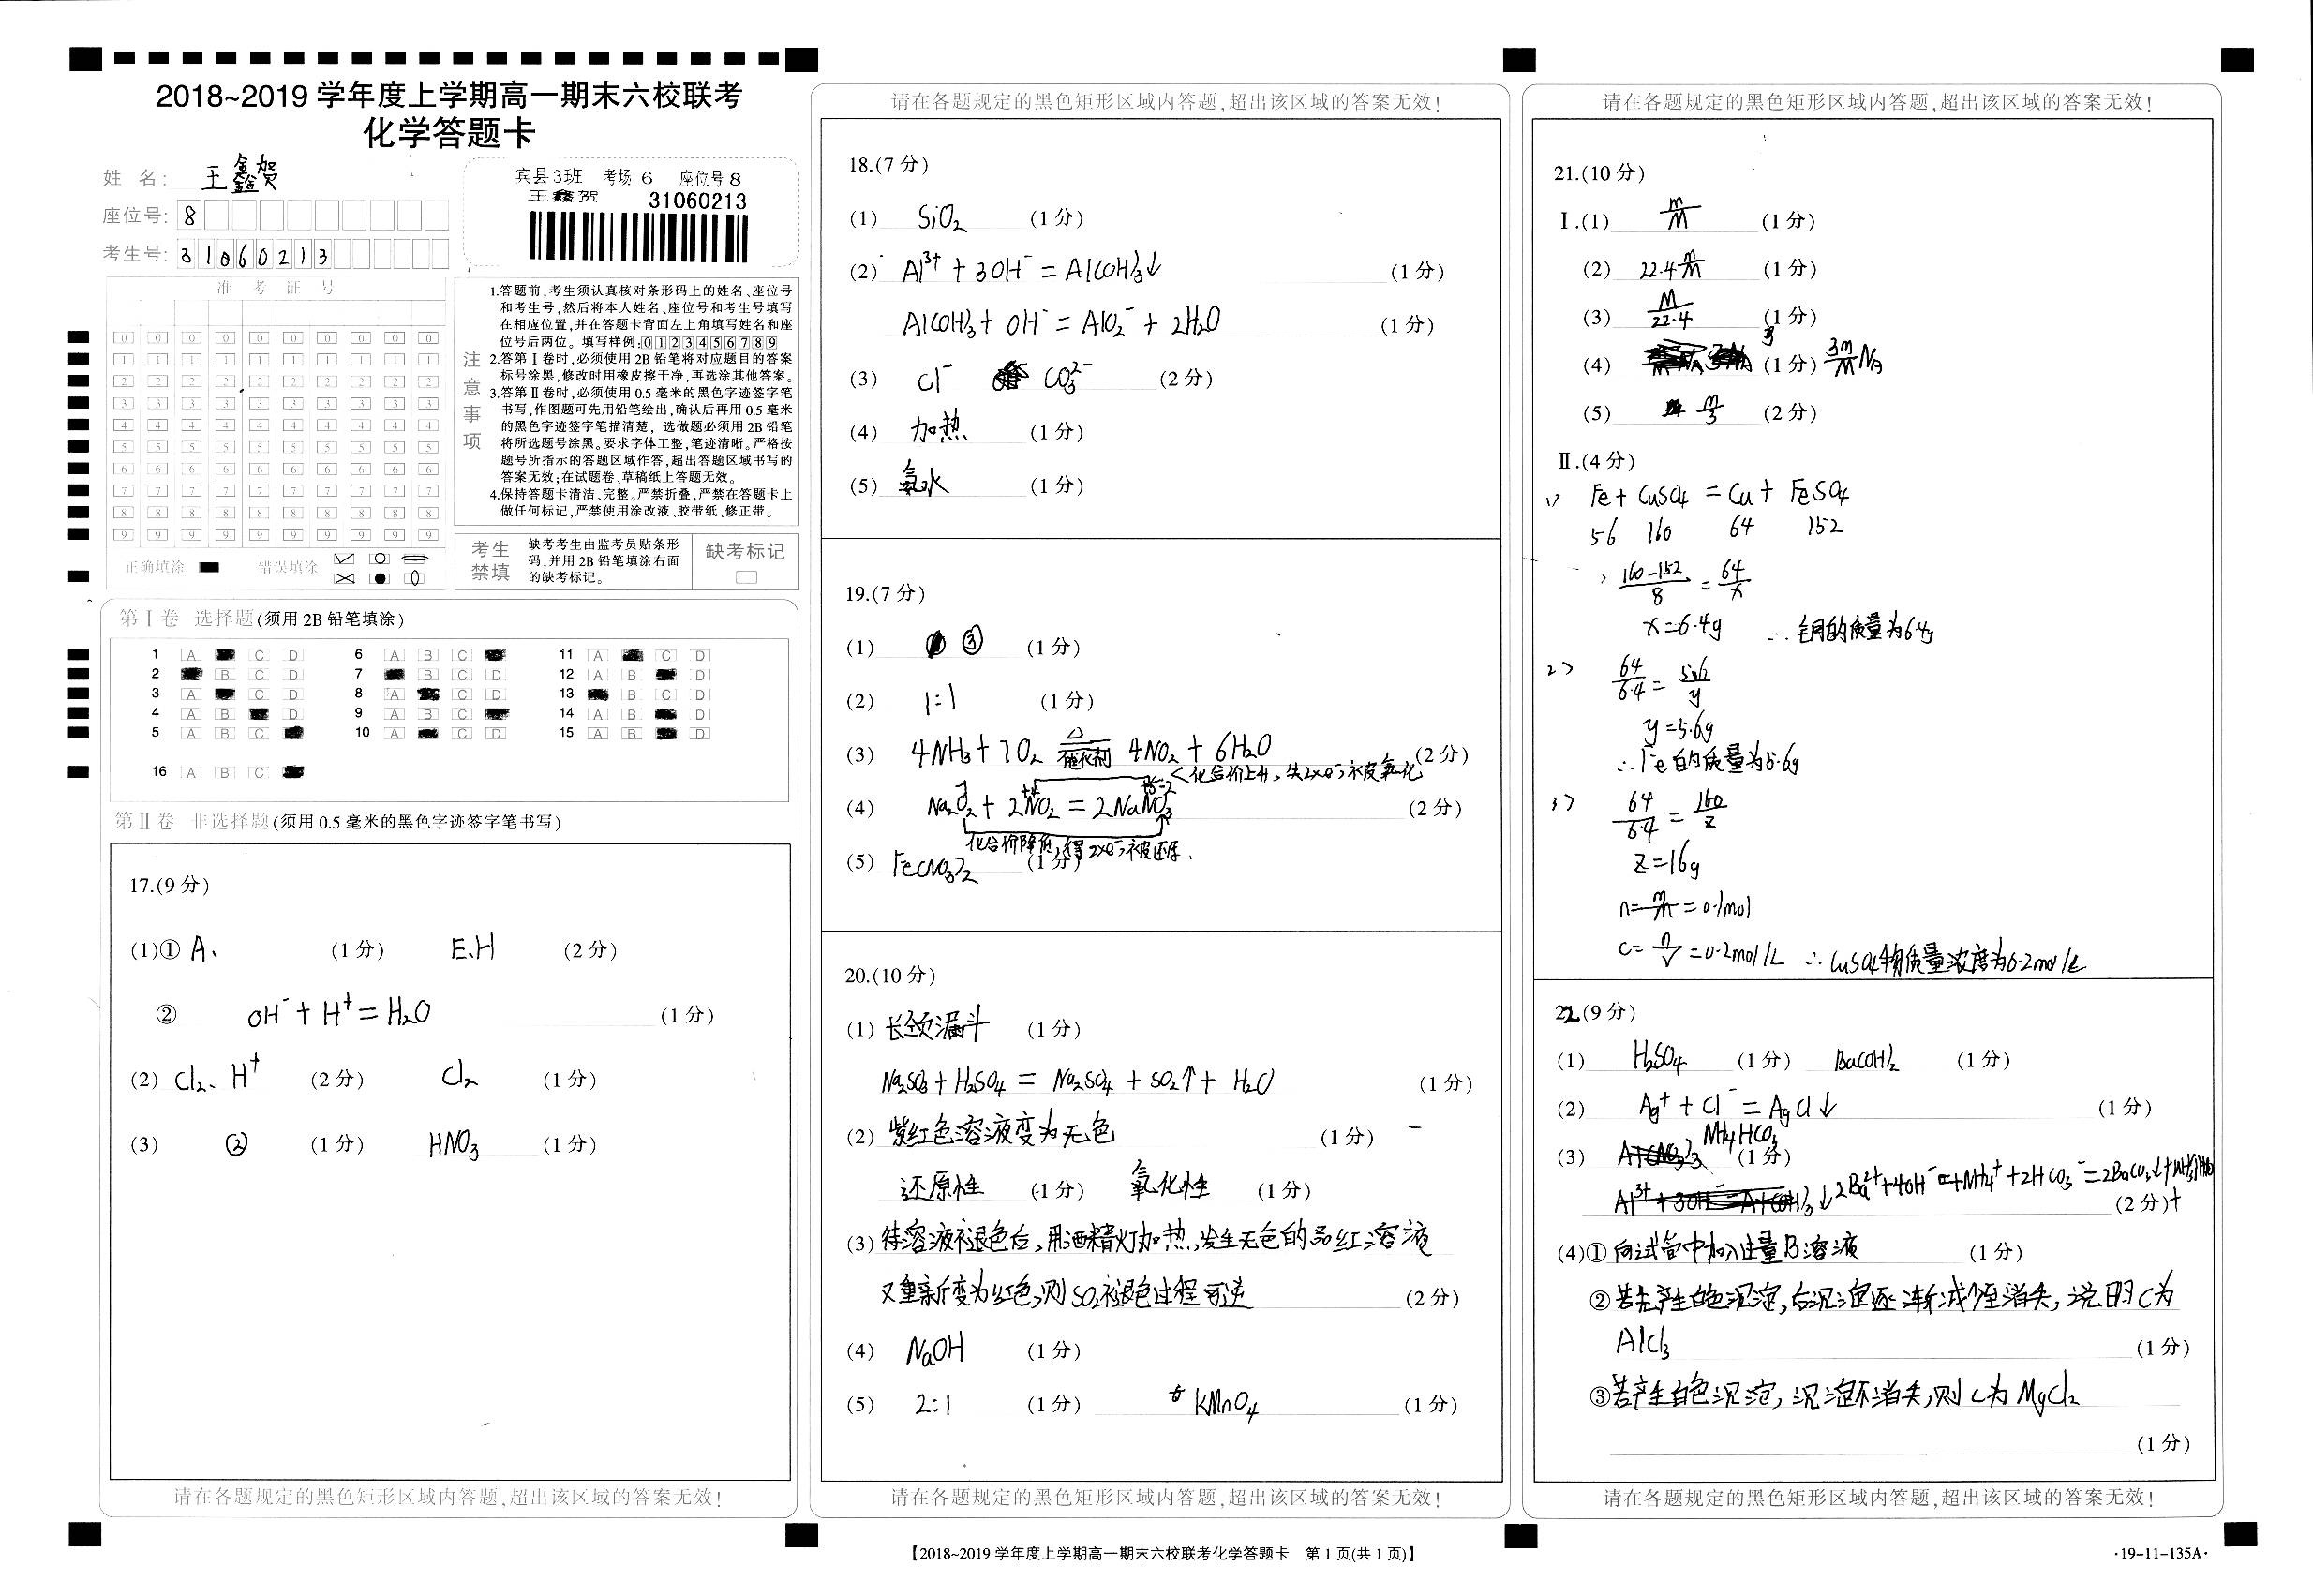 2018~2019 学年度上学期高一期末六校联考
化学答题卡
姓 名： 王鑫贺
座位号： 8
考生号： 31060213
宾县3班 考场 6 座位号 8
王鑫贺 31060213
准 考 证 号
注意事项
1.答题前,考生须认真核对条形码上的姓名、座位号
和考生号,然后将本人姓名、座位号和考生号填写
在相应位置,并在答题卡背面左上角填写姓名和座
位号后两位。填写样例:0123456789
2.答第Ⅰ卷时,必须使用2B铅笔将对应题目的答案
标号涂黑,修改时用橡皮擦干净,再选涂其他答案。
3.答第Ⅱ卷时,必须使用0.5毫米的黑色字迹签字笔
书写,作图题可先用铅笔绘出,确认后再用0.5毫米
的黑色字迹签字笔描清楚，选做题必须用2B铅笔
将所选题号涂黑。要求字体工整,笔迹清晰。严格按
题号所指示的答题区域作答,超出答题区域书写的
答案无效;在试题卷、草稿纸上答题无效。
4.保持答题卡清洁、完整。严禁折叠,严禁在答题卡上
做任何标记,严禁使用涂改液、胶带纸、修正带。
正确填涂 错误填涂
考生禁填
缺考考生由监考员贴条形
码,并用2B铅笔填涂右面
的缺考标记。
缺考标记
第Ⅰ卷 选择题(须用2B铅笔填涂)
1 A C D 6 A B C 11 A C D
2 B C D 7 B C D 12 A B D
3 A C D 8 A C D 13 B C D
4 A B D 9 A B C 14 A B D
5 A B C 10 A C D 15 A B D
16 A B C
第Ⅱ卷 非选择题(须用0.5毫米的黑色字迹签字笔书写)
17.(9分)
(1)① A、 (1分) E、H (2分)
② OH⁻ + H⁺ = H₂O (1分)
(2) Cl₂、H⁺ (2分) Cl₂ (1分)
(3) ② (1分) HNO₃ (1分)
请在各题规定的黑色矩形区域内答题,超出该区域的答案无效!
请在各题规定的黑色矩形区域内答题,超出该区域的答案无效!
18.(7分)
(1) SiO₂ (1分)
(2) Al³⁺ + 3OH⁻ = Al(OH)₃↓ (1分)
Al(OH)₃ + OH⁻ = AlO₂⁻ + 2H₂O (1分)
(3) Cl⁻ CO₃²⁻ (2分)
(4) 加热 (1分)
(5) 氨水 (1分)
19.(7分)
(1) ③ (1分)
(2) 1:1 (1分)
(3) 4NH₃ + 7O₂ △ 催化剂 4NO₂ + 6H₂O (2分)
化合价上升，失2xe⁻，被氧化
(4) Na₂O₂ + 2NO₂ = 2NaNO₃ (2分)
化合价降低，得2xe⁻，被还原.
(5) Fe(NO₃)₂ (1分)
20.(10分)
(1) 长颈漏斗 (1分)
Na₂SO₃ + H₂SO₄ = Na₂SO₄ + SO₂↑ + H₂O (1分)
(2) 紫红色溶液变为无色 (1分)
还原性 (1分) 氧化性 (1分)
(3) 待溶液褪色后,用酒精灯加热,发生无色的品红溶液
又重新变为红色,则SO₂褪色过程可逆 (2分)
(4) NaOH (1分)
(5) 2:1 (1分) KMnO₄ (1分)
请在各题规定的黑色矩形区域内答题,超出该区域的答案无效!
【2018~2019学年度上学期高一期末六校联考化学答题卡 第1页(共1页)】
请在各题规定的黑色矩形区域内答题,超出该区域的答案无效!
21.(10分)
Ⅰ.(1) m/M (1分)
(2) 22.4m/M (1分)
(3) M/22.4 (1分)
(4) (1分) 3m/M NA
(5) m/3 (2分)
Ⅱ.(4分)
1) Fe + CuSO₄ = Cu + FeSO₄
56 160 64 152
(160-152)/8 = 64/x
x=6.4g ∴铜的质量为6.4g
2) 64/6.4 = 56/y
y=5.6g
∴Fe的质量为5.6g
3) 64/6.4 = 160/z
z=16g
n=m/M=0.1mol
c=n/V=0.2mol/L ∴CuSO₄物质量浓度为0.2mol/L
22(9分)
(1) H₂SO₄ (1分) Ba(OH)₂ (1分)
(2) Ag⁺ + Cl⁻ = AgCl↓ (1分)
(3) NH₄HCO₃ (1分)
2Ba²⁺+4OH⁻+NH₄⁺+2HCO₃⁻=2BaCO₃↓+ (2分)
(4)①向试管中加入过量B溶液 (1分)
②若先产生白色沉淀,后沉淀逐渐减少至消失,说明C为
AlCl₃ (1分)
③若产生白色沉淀,沉淀不消失,则C为MgCl₂
(1分)
请在各题规定的黑色矩形区域内答题,超出该区域的答案无效!
·19-11-135A·